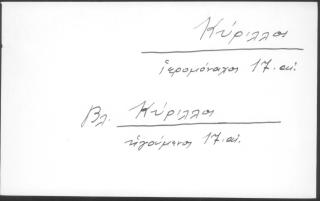 Κύριλλος
ἱερομόναχος 17. αἰ.
Βλ. Κύριλλος
ἡγούμενος 17. αἰ.